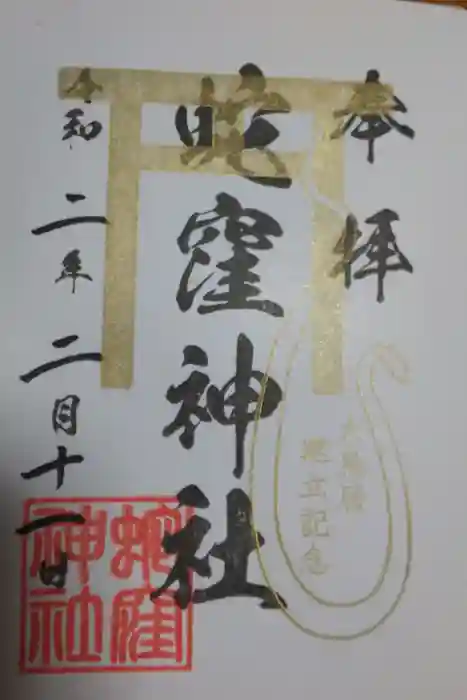 奉拝
蛇窪神社
令和二年二月十一日
大鳥居
建立記念
蛇窪
神社